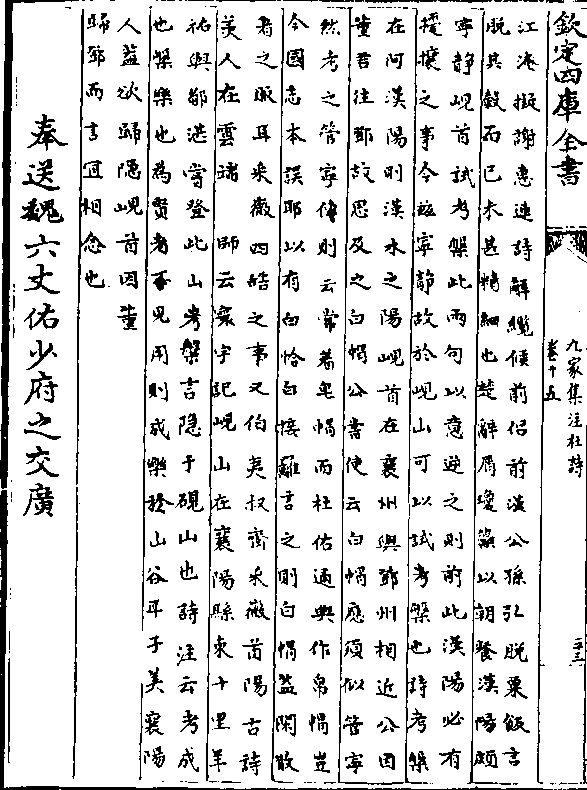 欽定四庫全書
九家集注杜詩
卷十五
江淹擬謝惠連詩解纜候前侶前漢公孫弘脱粟飯言
脱其穀而已未甚精細也楚辭屑瓊蘂以朝餐漢陽頗
寧静峴首試考槃此兩句以意逆之則前此漢陽必有
擾攘之事今兹寧静故於峴山可以試考槃也詩考槃
在阿漢陽則漢水之陽峴首在襄州與鄧州相近公因
董君往鄧故思及之白帽公嘗使云白帽應須似管寧
然考之管寧傳則云常着皂帽而杜佑通典作帛帽豈
今國志本誤耶以有白恰白接䍦言之則白帽盖閑散
者之服耳采薇四皓之事又伯夷叔齊采薇首陽古詩
美人在雲端 師云寰宇記峴山在襄陽縣東十里羊
祐與鄒湛嘗登此山考槃言隱于硯山也詩注云考成
也槃樂也為賢者不見用則成樂於山谷耳子美襄陽
人盖欲歸隱峴首因董
歸鄧而言宜相念也
奉送魏六丈佑少府之交廣